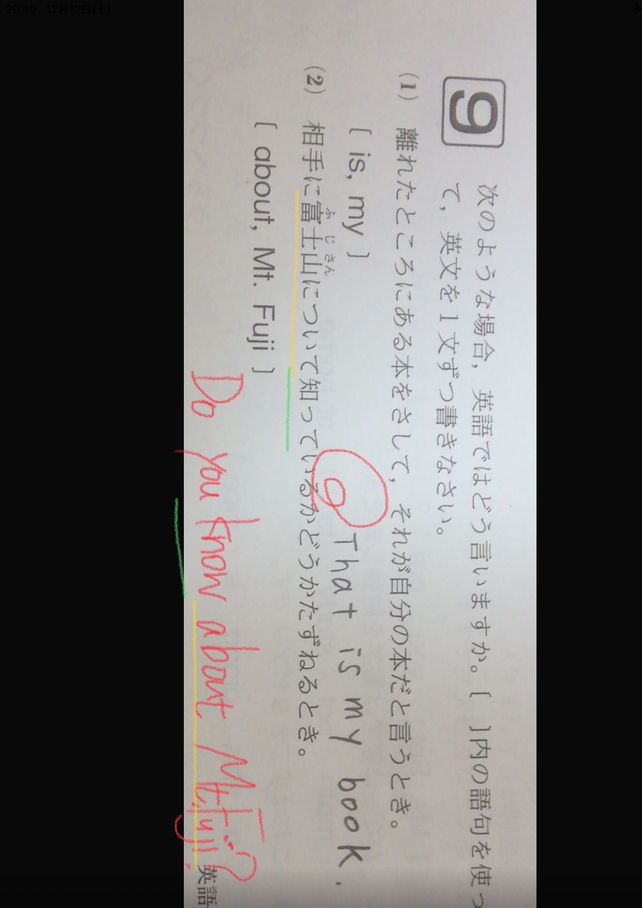 20:10 12月12日(土)
9
次のような場合，英語ではどう言いますか。〔 〕内の語句を使っ
て，英文を1文ずつ書きなさい。
(1) 離れたところにある本をさして，それが自分の本だと言うとき。
〔 is, my 〕
That is my book.
(2) 相手に富士山について知っているかどうかたずねるとき。
ふ じ さん
〔 about, Mt. Fuji 〕
Do you know about Mt. Fuji?
英語